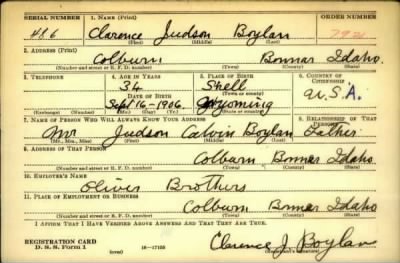 SERIAL NUMBER 1. NAME (Print) ORDER NUMBER
486 Clarence Judson Boylan 792
(First) (Middle) (Last)
2. ADDRESS (Print)
Colburn Bonnar Idaho.
(Number and street or R. F. D. number) (Town) (County) (State)
3. TELEPHONE 4. AGE IN YEARS 5. PLACE OF BIRTH 6. COUNTRY OF CITIZENSHIP
34 Shell
DATE OF BIRTH (Town or county)
Sept 16-1906. Wyoming U.S.A.
(Exchange) (Number) (Mo.) (Day) (Yr.) (State or country)
7. NAME OF PERSON WHO WILL ALWAYS KNOW YOUR ADDRESS 8. RELATIONSHIP OF THAT PERSON
Mr Judson Calvin Boylan Father
(Mr., Mrs., Miss) (First) (Middle) (Last)
9. ADDRESS OF THAT PERSON
Colburn Bonnar Idaho.
(Number and street or R. F. D. number) (Town) (County) (State)
10. EMPLOYER'S NAME
Oliver Brothers
11. PLACE OF EMPLOYMENT OR BUSINESS
Colburn Bonnar Idaho
(Number and street or R. F. D. number) (Town) (County) (State)
I AFFIRM THAT I HAVE VERIFIED ABOVE ANSWERS AND THAT THEY ARE TRUE.
REGISTRATION CARD
D. S. S. Form 1 (over) 16—17105 Clarence J. Boylan